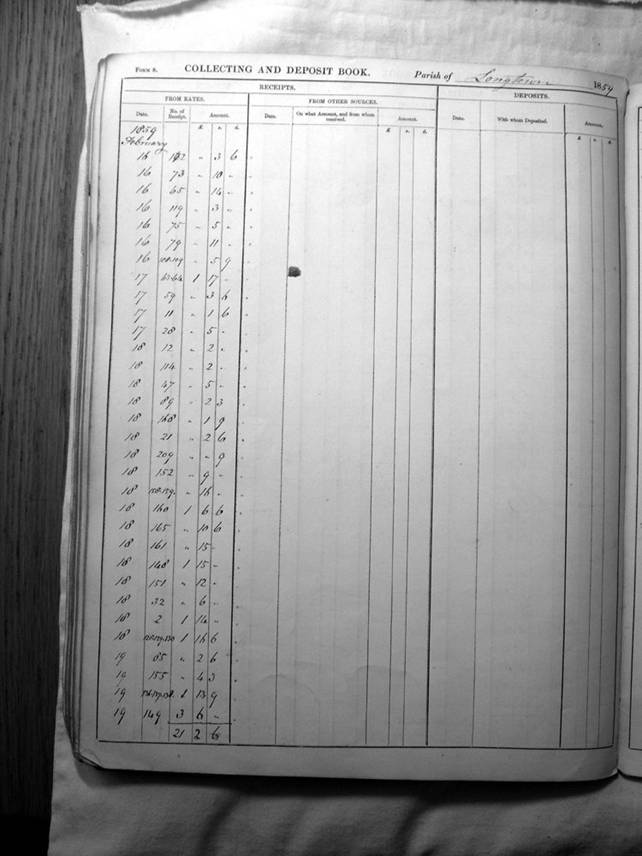 FORM 8. COLLECTING AND DEPOSIT BOOK. Parish of Longtown 1859
RECEIPTS. DEPOSITS.
FROM RATES. FROM OTHER SOURCES.
Date. No. of Receipt. Amount. Date. On what Amount, and from whom received. Amount. Date. With whom Deposited. Amount.
£. s. d. £. s. d. £. s. d.
1859
February
16 " 3 6
16 73 " 10 "
16 65 " 14 "
16 119 " 3 "
16 75 " 5 "
16 79 " 11 "
16 " 5 9
17 1 17 "
17 59 " 3 6
17 11 " 1 6
17 28 " 5 "
18 12 " 2 "
18 114 " 2 "
18 47 " 5 "
18 89 " 2 3
18 168 " 1 9
18 21 " 2 6
18 209 " " 9
18 152 " 9 "
18 " 16 "
18 160 1 6 6
18 165 " 10 6
18 161 " 15 "
18 148 1 15 "
18 151 " 12 "
18 32 " 6 "
18 2 1 14 "
18 1 16 6
19 85 " 2 6
19 155 " 4 3
19 1 13 9
19 149 3 6 "
21 2 6